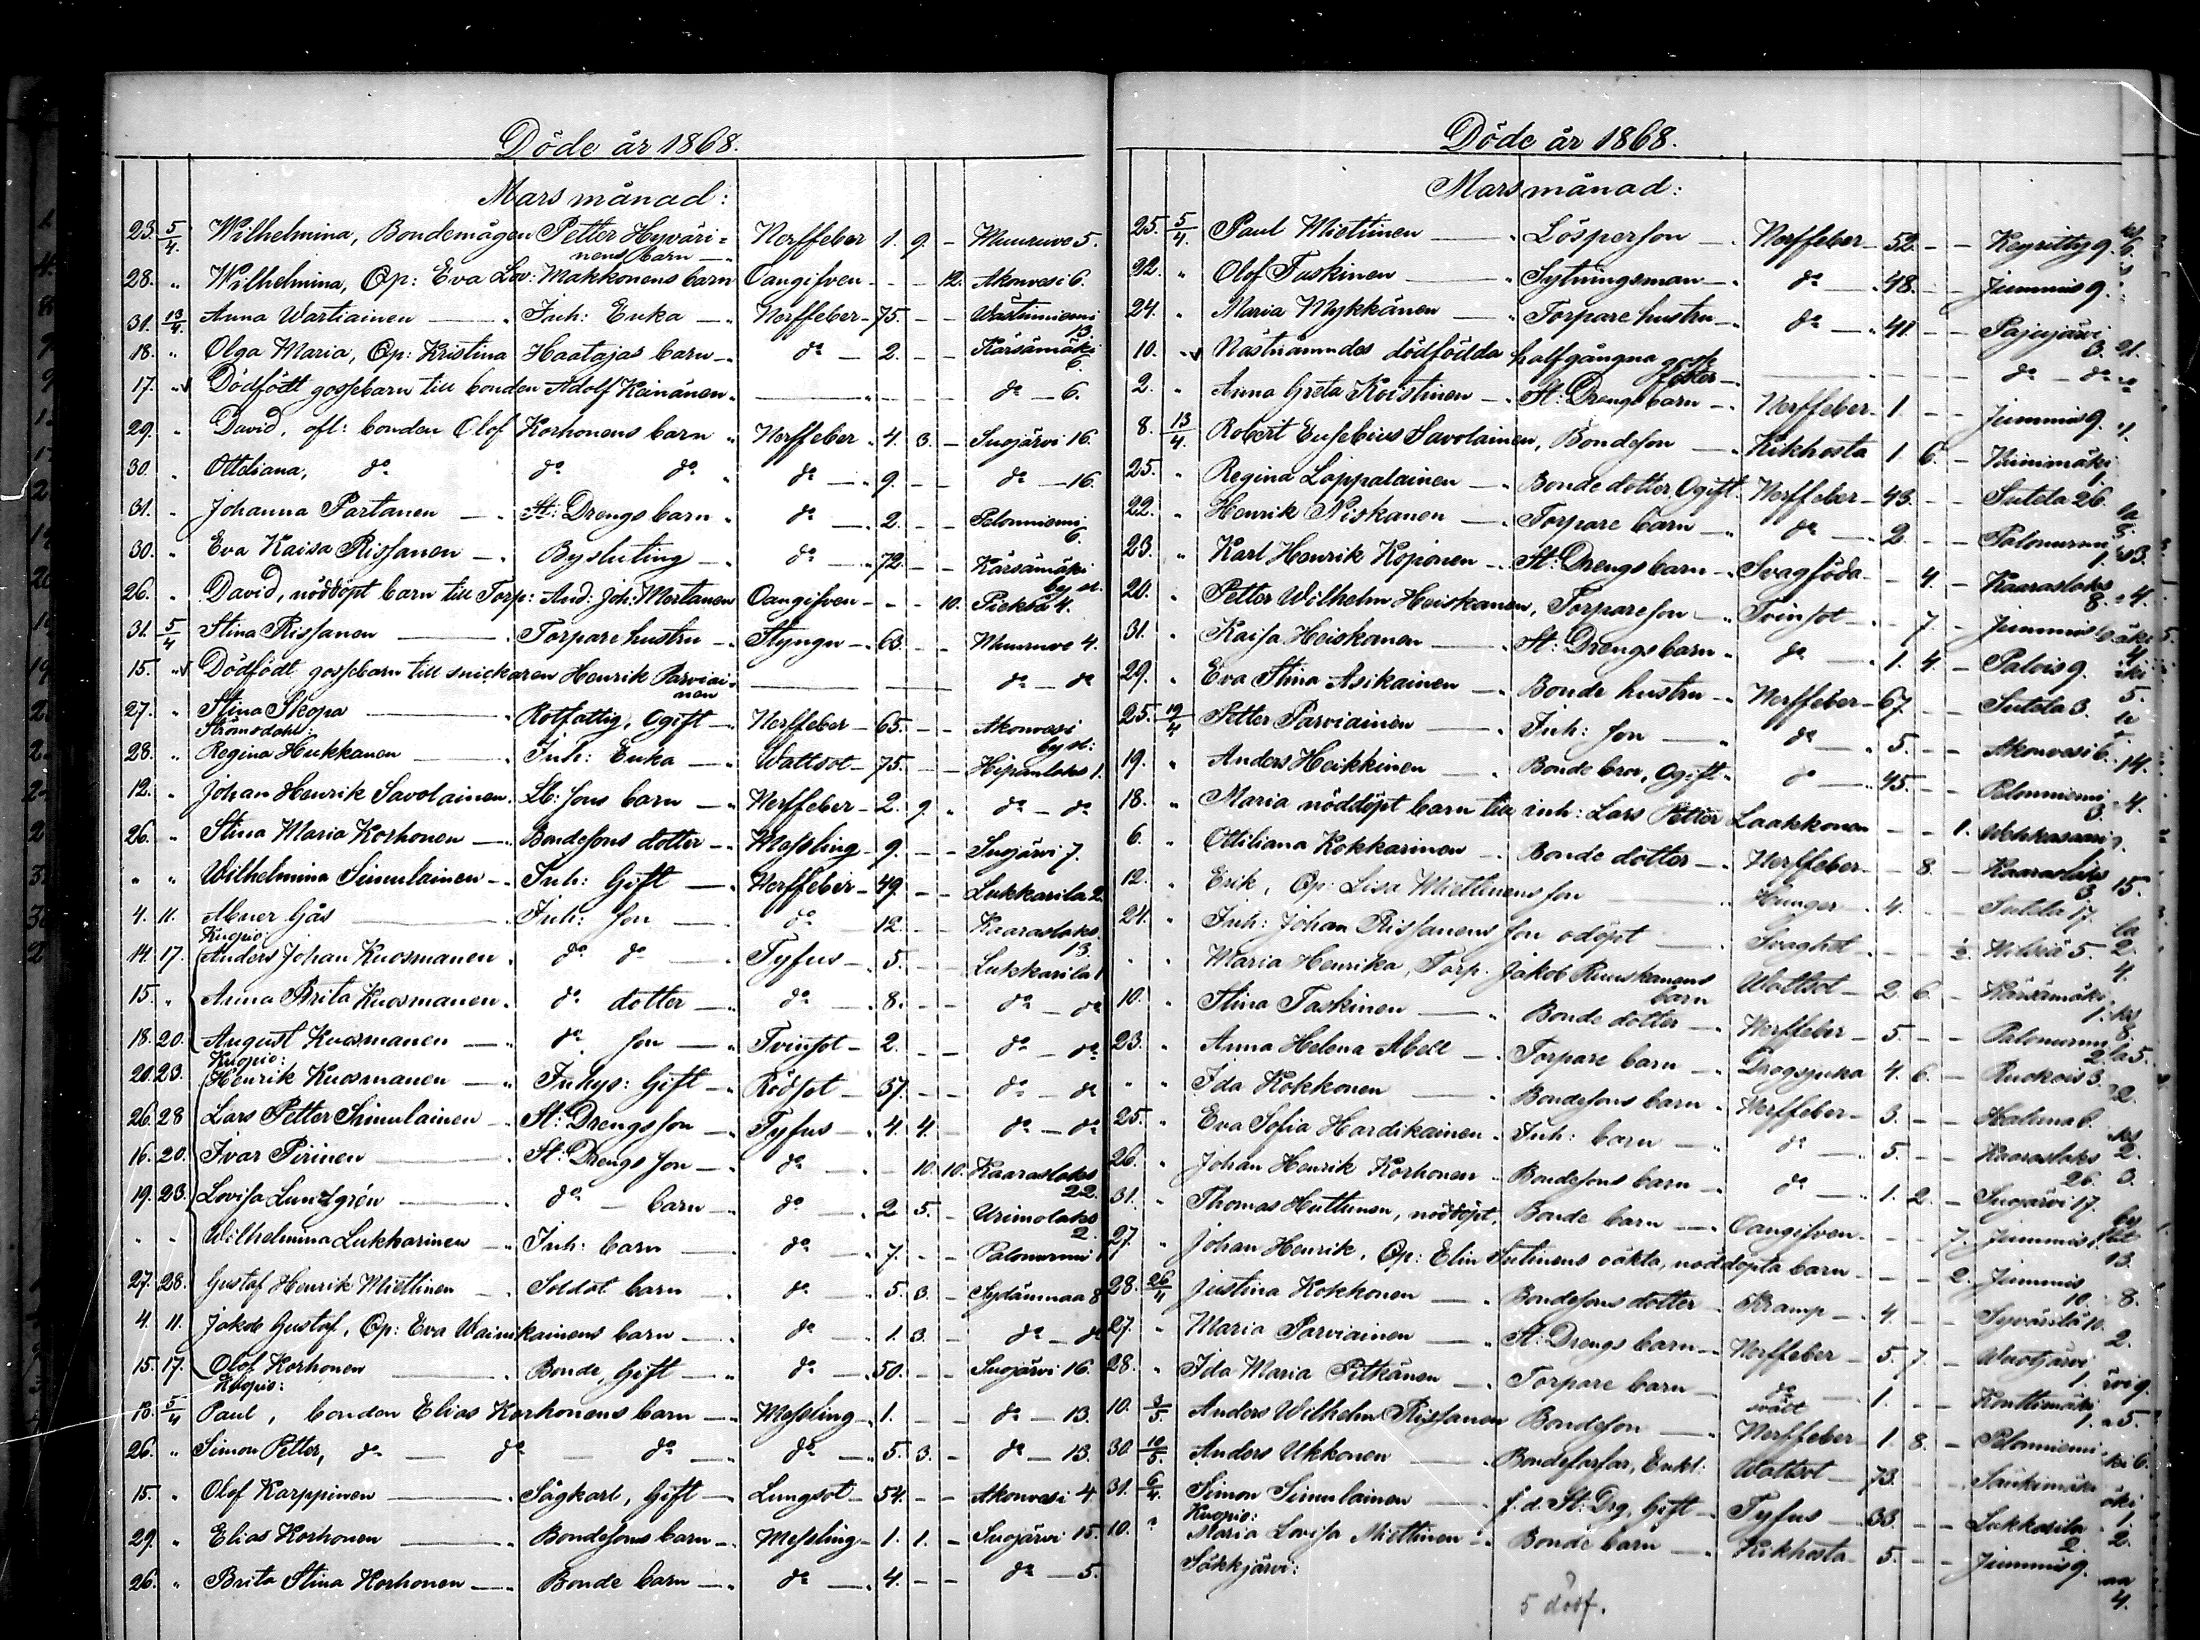 Döde år 1868.
Mars månad:
23. 5/4. Wilhelmina, Bondemågen Petter Hyväri= Nerffeber 1. 9. - Muuruve 5.
nens barn
28. " Wilhelmina, Qp: Eva Lov: Makkonens barn Oangifven - - 12. Akonvesi 6.
31. 13/4. Anna Wartiainen Inh: Enka Nerffeber 75. - - Västinniemi
13.
18. " Olga Maria, Qp: Kristina Haatajas barn do 2. - - Kärsämäki
6.
17. " Dödfödt gossebarn till bonden Adolf Keinänen do 6.
29. " David, afl: bonden Olof Korhonens barn " Nerffeber 4. 3. - Suojärvi 16.
30. " Ottiliana, do do do " do 9. - - do 16.
31. " Johanna Partanen St: Drengs barn " do 2. - - Pelonniemi
6.
30. " Eva Kaisa Rissanen Bysluting do 72. - - Kärsämäki
by st.
26. " David, nöddöpt barn till Torp: And: Joh: Mertanen Oangifven - - 10. Pieksä 4.
31. 5/4 Stina Rissanen Torpare hustru Styngn 63. - - Muuruve 4.
15. " Dödfödt gossebarn till snickaren Henrik Parviai=
nen do - do
27. " Stina Skopa Rotfattig, Ogift Nerffeber 65. - - Akonvesi
Strömsdahl: by st:
28. " Regina Hukkanen Inh: Enka Wattsot 75. - - Hipanlaks 1.
12. " Johan Henrik Savolainen. Lb: sons barn Nerffeber 2. 9. " do - do
26. " Stina Maria Korhonen Bondesons dotter Messling 9. - - Suojärvi 7.
" " Wilhelmina Simulainen Inh: Gift Nerffeber 49. - - Lukkarila 2.
4. 11. Abner Gås Inh: son do 12. - - Kaaraslaks.
Kuopio: 13.
14 17. Anders Johan Kuosmanen do do Tyfus 5. - - Lukkarila 1
15. " Anna Brita Kuosmanen. do dotter do 8. - - do - do
18. 20. August Kuosmanen do son Tvinsot 2. - - do - do
Kuopio:
20. 23. Henrik Kuosmanen Inhys: Gift Rödsot 57. - - do - do
26. 28 Lars Petter Simulainen St: Drengs son Tyfus 4. 4. - do - do
16. 20. Ivar Pirinen St: Drengs son do - 10. 10. Kaaraslaks
22.
19. 23. Lovisa Lundgrén do barn do 2 5. - Urimolaks
2.
" " Wilhelmina Lukkarinen Inh: barn do 7. - - Palonurmi 1
27. 28. Gustaf Henrik Miettinen Soldat barn do 5. 3. - Sydänmaa 8
4. 11. Jakob Gustaf, Qp: Eva Wainikainens barn do 1. 3. - do - do
15. 17. Olof Korhonen Bonde, Gift do 50. - - Suojärvi 16.
Kuopio:
13. 5/4 Paul, bonden Elias Korhonens barn Messling 1. - - do 13.
26. " Simon Petter, do do do do 5. 3. - do 13.
15. " Olof Karppinen Sågkarl, Gift Lungsot 54. - - Akonvesi 4
29. " Elias Korhonen Bondesons barn Messling 1. 1. - Suojärvi 15.
26. " Brita Stina Korhonen Bonde barn do 4. - - do 5.
Döde år 1868.
Mars månad:
25. 5/4. Paul Miettinen Lösperson Nerffeber 52. - - Keyritty 9.
22. " Olof Taskinen Sytningsman do 48. - - Jummis 9.
24. " Maria Mykkänen Torpare hustru do 41. - - Pajujärvi
3.
10. " Nästnämndes dödfödda halfgångna goss
foster do - do
2. " Anna Greta Koistinen St: Drengs barn Nerffeber 1. - - Jummis 9.
8. 13/4. Robert Eusebius Savolainen, Bondeson Kikhosta 1 6. - Kinimäki
1.
25. " Regina Lappalainen Bonde dotter, Ogift Nerffeber 43. - - Sutela 26.
22. " Henrik Niskanen Torpare barn do 2 - - Palonurmi
1.
23. " Karl Henrik Koponen St: Drengs barn Svagföda - 4. - Kaaraslaks
8.
20. " Petter Wilhelm Heiskanen, Torpare son Tvinsot - 7. - Jummis 6
31. " Kaisa Heiskanen St: Drengs barn do 1. 4. - Palois 9.
29. " Eva Stina Asikainen Bonde hustru Nerffeber 67. - - Sutela 3.
25. 19/4 Petter Parviainen Inh: son do 5. - - Akonvesi 6.
19. " Anders Heikkinen Bonde bror, Ogift do 45. - - Pelonniemi
3.
18. " Maria nöddöpt barn till inh: Lars Petter Laakkonen - - 1. Wehkasaari
6. " Ottiliana Kokkarinen Bonde dotter Nerffeber - 8. - Kaaraslaks
3.
12. " Erik, Qp: Lisa Miettinens son Hunger 4. - - Sutela 17.
24. " Inh: Johan Rissanens son odöpt Svaghet - - ½. Wiluiä 5.
" " Maria Henrika, Torp. Jakob Ruuskanens
barn Wattsot 2 6. - Kärsämäki
1.
10. " Stina Taskinen Bonde dotter Nerffeber 5. - - Palonurmi
2
23. " Anna Helena Abell Torpare barn Dragsjuka 4. 6. - Ruokois 3.
" " Ida Kokkonen Bondesons barn Nerffeber 3. - - Haluna 6.
25. " Eva Sofia Hardikainen Inh: barn do 5. - - Kaaraslaks
26.
26. " Johan Henrik Korhonen Bondesons barn do 1. 2. - Suojärvi 17.
31. " Thomas Huttunen, nöddöpt, Bonde barn Oangifven - - 7. Jummis 1.
27. " Johan Henrik, Qp: Elin Tutinens oäkta, nöddöpta barn - - 2. Jummis
10.
28. 26/11 Justina Kokkonen Bondesons dotter Kramp 4. - - Syvärilä 10.
27. " Maria Parviainen St: Drengs barn Nerffeber 5. 7. - Wuotjärvi
1.
28. " Ida Maria Pitkänen Torpare barn do 1. - - Konttimäki
1.
10. 3/5 Anders Wilhelm Rissanen Bondeson Nerffeber 1. 8. - Pelonniemi
30. 10/5. Anders Ukkonen Bondefarfar, Enkl: Wattsot 73. - - Sänkimäki
31. 6/4. Simon Simulainen f.d. St: Drg, Gift Tyfus 33. - - Lukkarila
Kuopio: 2.
10. " Maria Lovisa Miettinen Bonde barn Kikhosta 5. - - Jummis 9.
Säkkjärvi:
5 dödf.